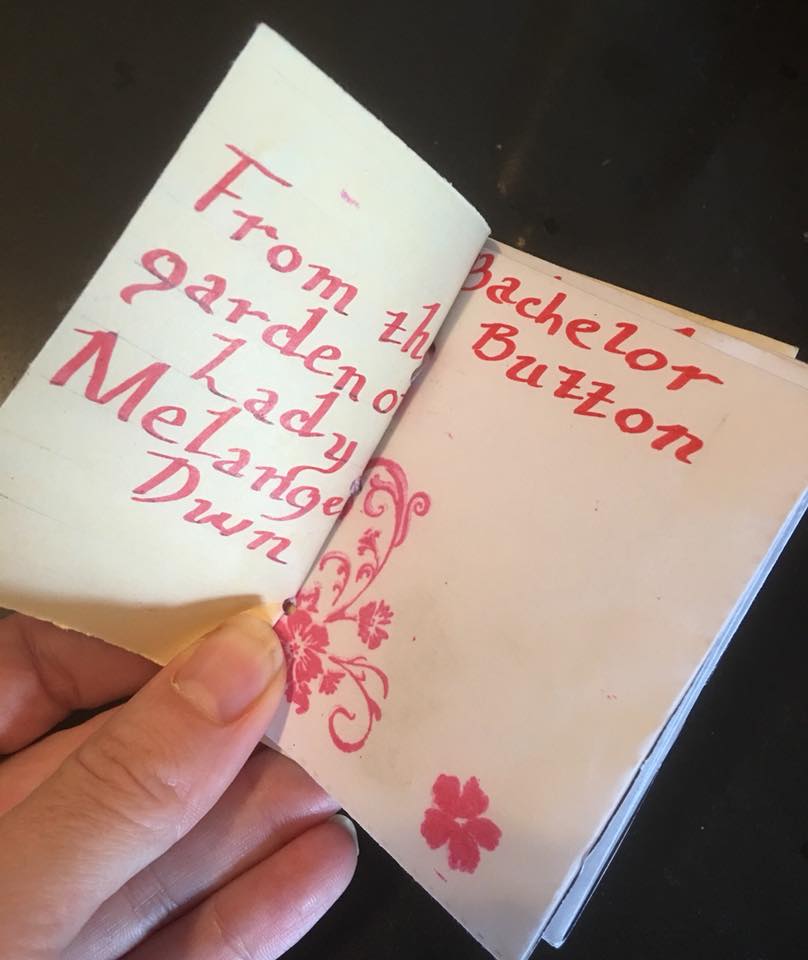 From th
garden o
Lady
Melange
Dwn
Bachelor
Button